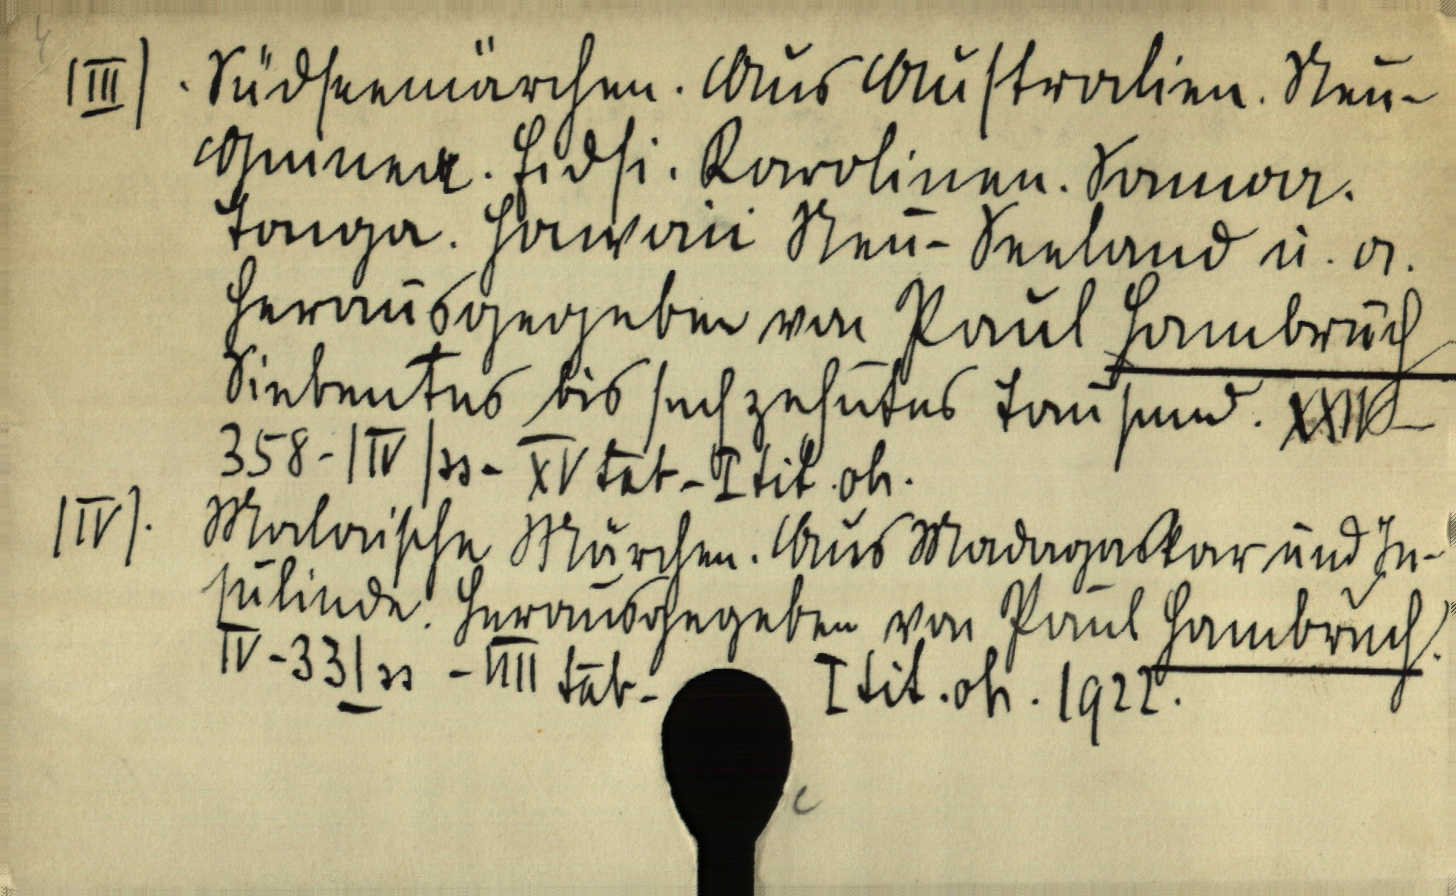 |III|. Südseemärchen. Aus Australien. Neu-
Guinea. Fidsi. Karolinen. Samoa.
Tonga. Hawaii Neu-Seeland u. a.
Herausgegeben von Paul Hambruch
Siebentes bis sechzehntes Tausend. XXIV-
358-|IV|ss- XV tab-I tit. oh.
|IV|. Malaische Märchen. Aus Madagaskar und In-
sulinde. Herausgegeben von Paul Hambruch.
IV-331ss - VIII tab- I tit. oh. 1922.